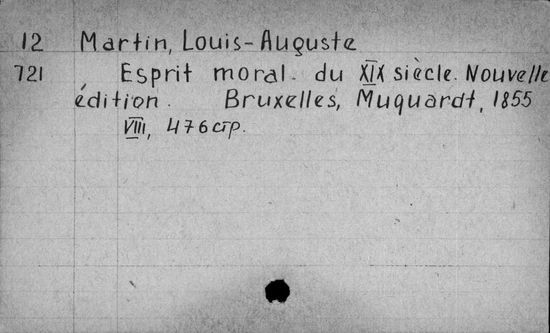 12 Martin, Louis-Auguste
721 Esprit moral du XIX siècle. Nouvelle
édition. Bruxelles, Muquardt, 1855
VIII, 476 стр.